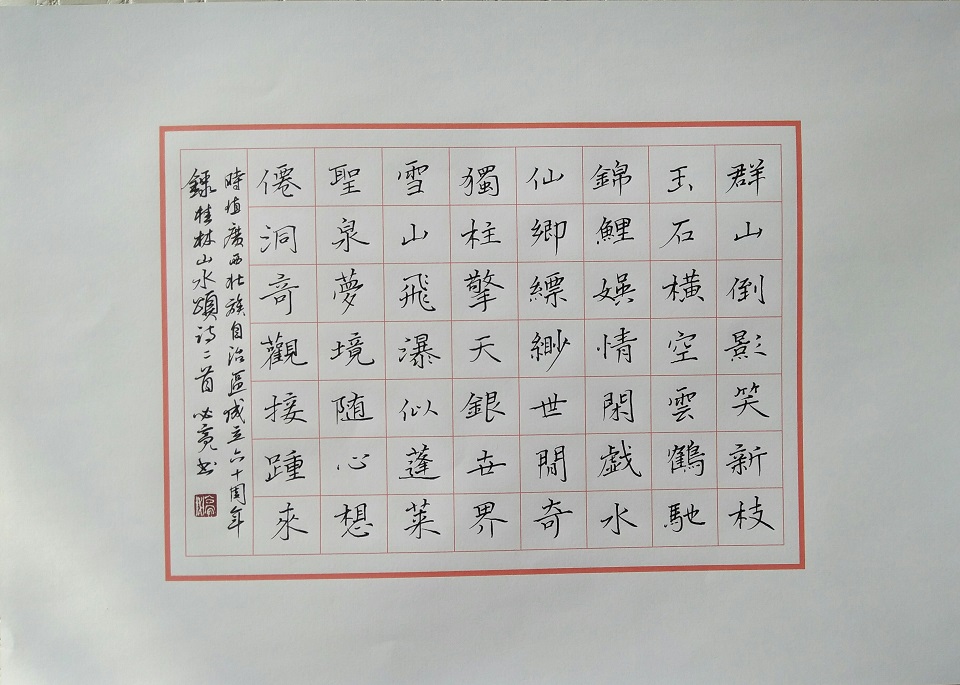 群山倒影笑新枝
玉石橫空雲鶴馳
錦鯉娛情閑戯水
仙鄉縹緲世間奇
獨柱擎天銀世界
雪山飛瀑似蓬萊
聖泉夢境随心想
僊洞奇觀接踵來
時值廣西壯族自治區成立六十周年
錄桂林山水頌詩二首 必亮书